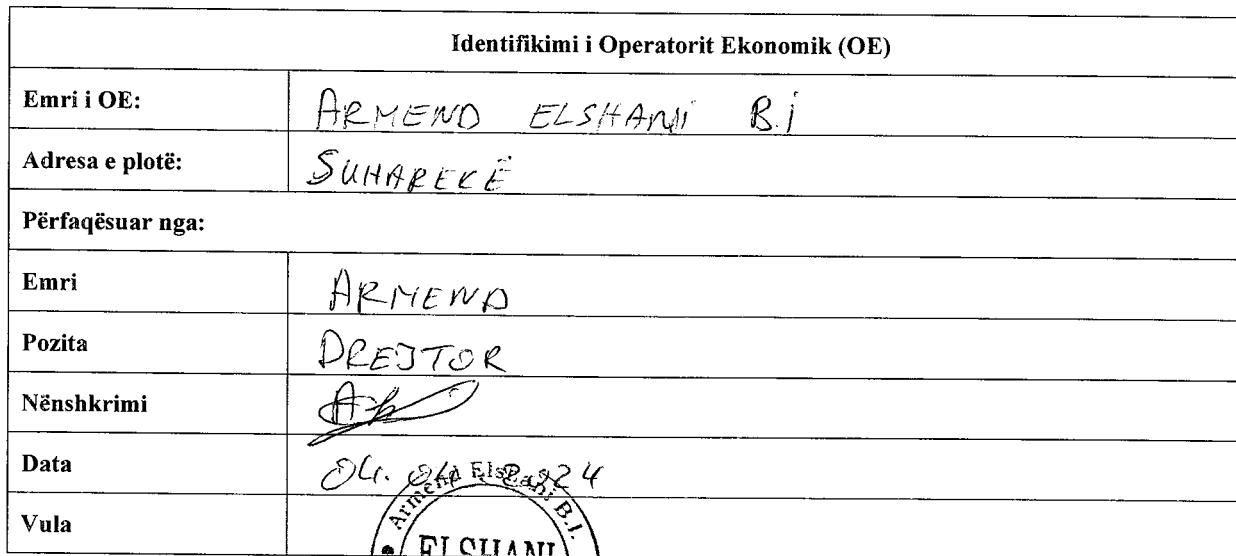 Identifikimi i Operatorit Ekonomik (OE)
Emri i OE: ARMEND ELSHANI B.I
Adresa e plotë: SUHAREKË
Përfaqësuar nga:
Emri ARMEND
Pozita DREJTOR
Nënshkrimi
Data 04.04.2024
Vula
Armend Elshani B.I.
ELSHANI